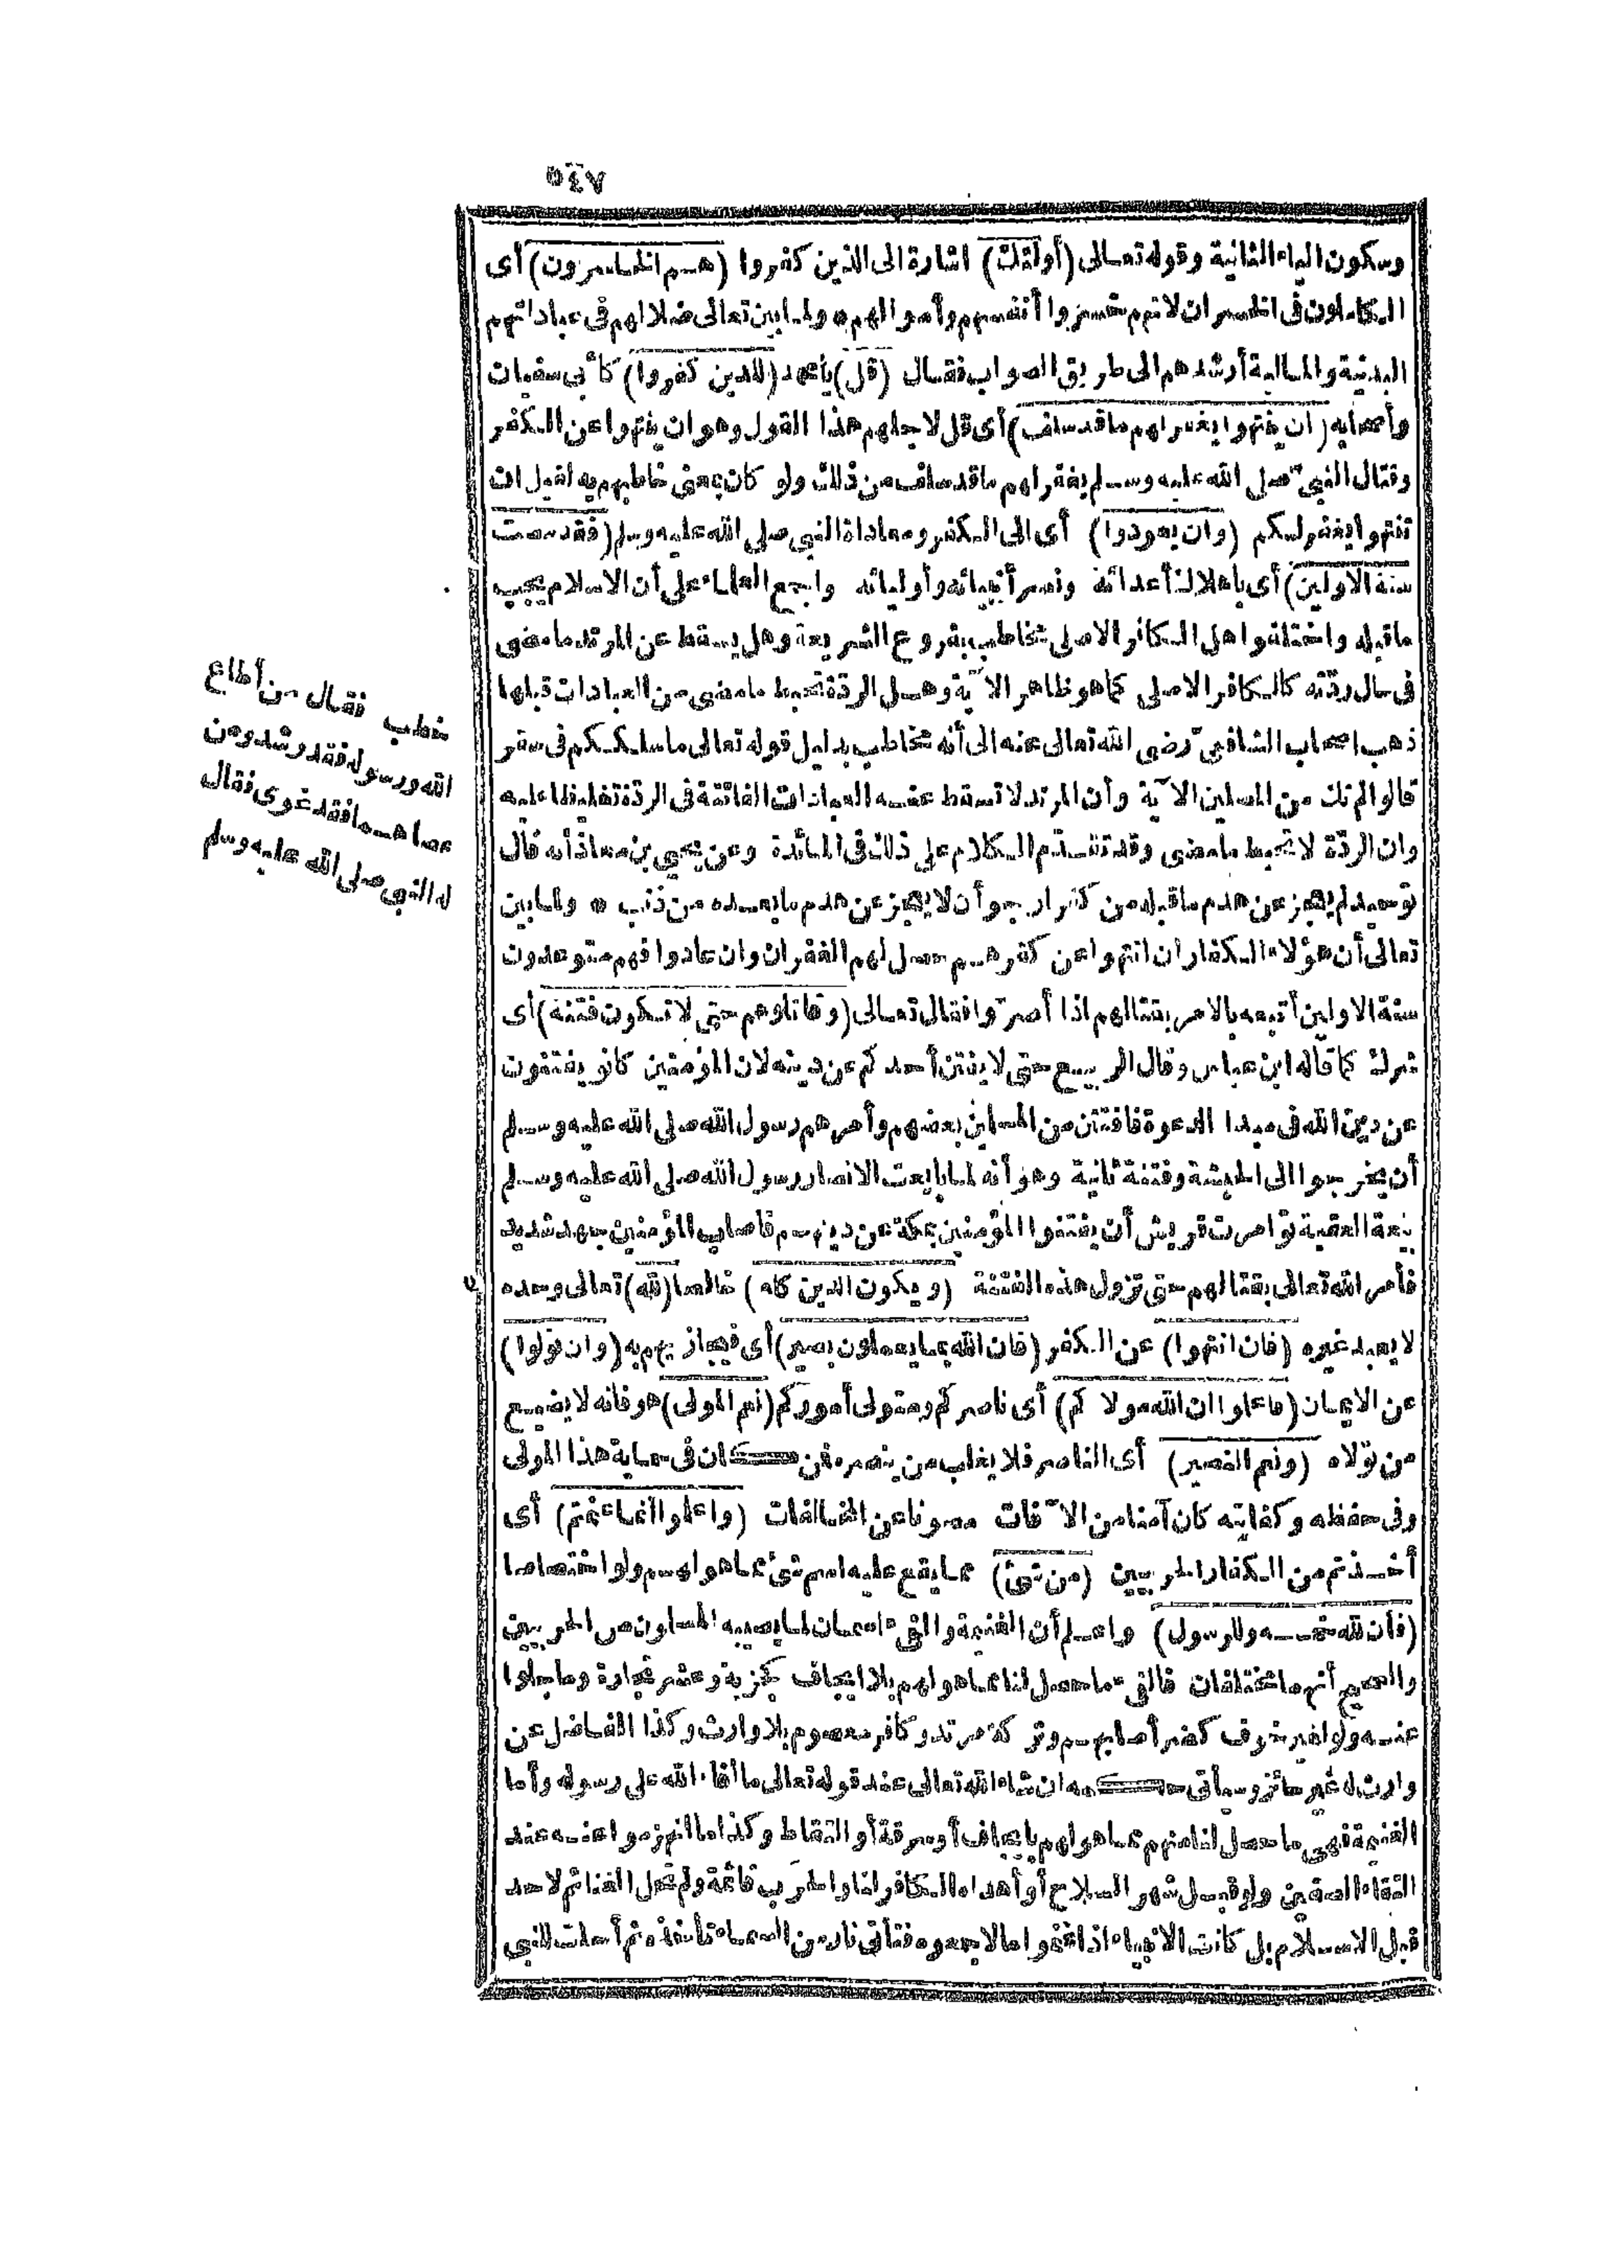 ٥٤٧
وسكون الياء الثانية وقوله تعالى (أولئك) اشارة الى الذين كفروا (هم الخاسرون) أى
الكاملون فى الخسران لانهم خسروا أنفسهم وأموالهم * ولما بين تعالى ضلالهم فى عباداتهم
البدنية والمالية أرشدهم الى طريق الصواب فقال (قل) يا محمد (للذين كفروا) كأبى سفيان
وأصحابه (ان ينتهوا يغفر لهم ما قد سلف) أى قل لاجلهم هذا القول وهو ان ينتهوا عن الكفر
وقتال النبىّ صلى الله عليه وسلم يغفر لهم ما قد سلف من ذلك ولو كان بمعنى خاطبهم به لقيل ان
تنتهوا يغفر لكم (وان يعودوا) أى الى الكفر ومعاداة النبى صلى الله عليه وسلم (فقد مضت
سنة الاولين) أى باهلاك أعدائه ونصر أنبيائه وأوليائه واجمع العلماء على أن الاسلام يجب
ما قبله واختلفوا هل الكافر الاصلى مخاطب بفروع الشريعة وهل يسقط عن المرتد ما مضى
فى حال ردّته كالكافر الاصلى كما هو ظاهر الآية وهل الردّة تحبط ما مضى من العبادات قبلها
ذهب اصحاب الشافعىّ رضى الله تعالى عنه الى أنه مخاطب بدليل قوله تعالى ما سلككم فى سقر
قالوا لم نك من المصلين الآية وأن المرتد لا تسقط عنه العبادات الفائتة فى الردّة تغليظا عليه
وان الردّة لا تحبط ما مضى وقد تقدّم الكلام على ذلك فى المائدة وعن يحيى بن معاذ أنه قال
توحيد لم يعجز عن هدم ما قبله من كفر ارجو أن لا يعجز عن هدم ما بعده من ذنب * ولما بين
تعالى أن هؤلاء الكفار ان انتهوا عن كفرهم حصل لهم الغفران وان عادوا فهم متوعدون
سنة الاولين أتبعه بالامر بقتالهم اذا أصرّوا فقال تعالى (وقاتلوهم حتى لا تكون فتنة) أى
شرك كما قاله ابن عباس وقال الربيع حتى لا يفتن أحدكم عن دينه لان المؤمنين كانوا يفتنون
عن دين الله فى مبدا الدعوة فافتتن من المسلمين بعضهم وأمرهم رسول الله صلى الله عليه وسلم
أن يخرجوا الى الحبشة وفتنة ثانية وهو أنه لما بايعت الانصار رسول الله صلى الله عليه وسلم
بيعة العقبة توامرت قريش أن يفتنوا المؤمنين بمكة عن دينهم فاصاب المؤمنين جهد شديد
فأمر الله تعالى بقتالهم حتى تزول هذه الفتنة (ويكون الدين كله) خالصا (لله) تعالى وحده
لا يعبد غيره (فان انتهوا) عن الكفر (فان الله بما يعملون بصير) أى فيجازيهم به (وان تولوا)
عن الايمان (فاعلموا ان الله مولاكم) أى ناصركم ومتولى أموركم (نعم المولى) هو فانه لا يضيع
من تولاه (ونعم النصير) أى الناصر فلا يغلب من ينصره فمن كان فى حماية هذا المولى
وفى حفظه وكفايته كان آمنا من الآفات مصونا عن المخالفات (واعلموا أنما غنمتم) أى
أخذتم من الكفار الحربيين (من شئ) مما يقع عليه اسم شئ مما هو لهم ولو اختصاصا
(فأن لله خمسه وللرسول) واعلم أن الغنيمة والفىء اسمان لما يصيبه المسلمون من الحربيين
والصحيح أنهما مختلفان فالفىء ما حصل لنا مما هو لهم بلا ايجاف كجزية وعشر تجارة وما جلوا
عنه ولو لغير خوف كضر أصابهم وتركة مرتد وكافر معصوم بلا وارث وكذا الفاضل عن
وارث له غير حائز وسيأتى حكمه ان شاء الله تعالى عند قوله تعالى ما أفاء الله على رسوله وأما
الغنيمة فهى ما حصل لنا منهم مما هو لهم بايجاف أو سرقة أو التقاط وكذا ما انهزموا عنه عند
التقاء الصفين ولو قبل شهر السلاح أو أهداه الكافر لنا والحرب قائمة ولم تحل الغنائم لاحد
قبل الاسلام بل كانت الانبياء اذا غنموا ما لا جمعوه فتأتى نار من السماء تأخذه ثم أحلت للنبى
خطب فقال من أطاع
الله ورسوله فقد رشد ومن
عصاهما فقد غوى فقال
له النبى صلى الله عليه وسلم